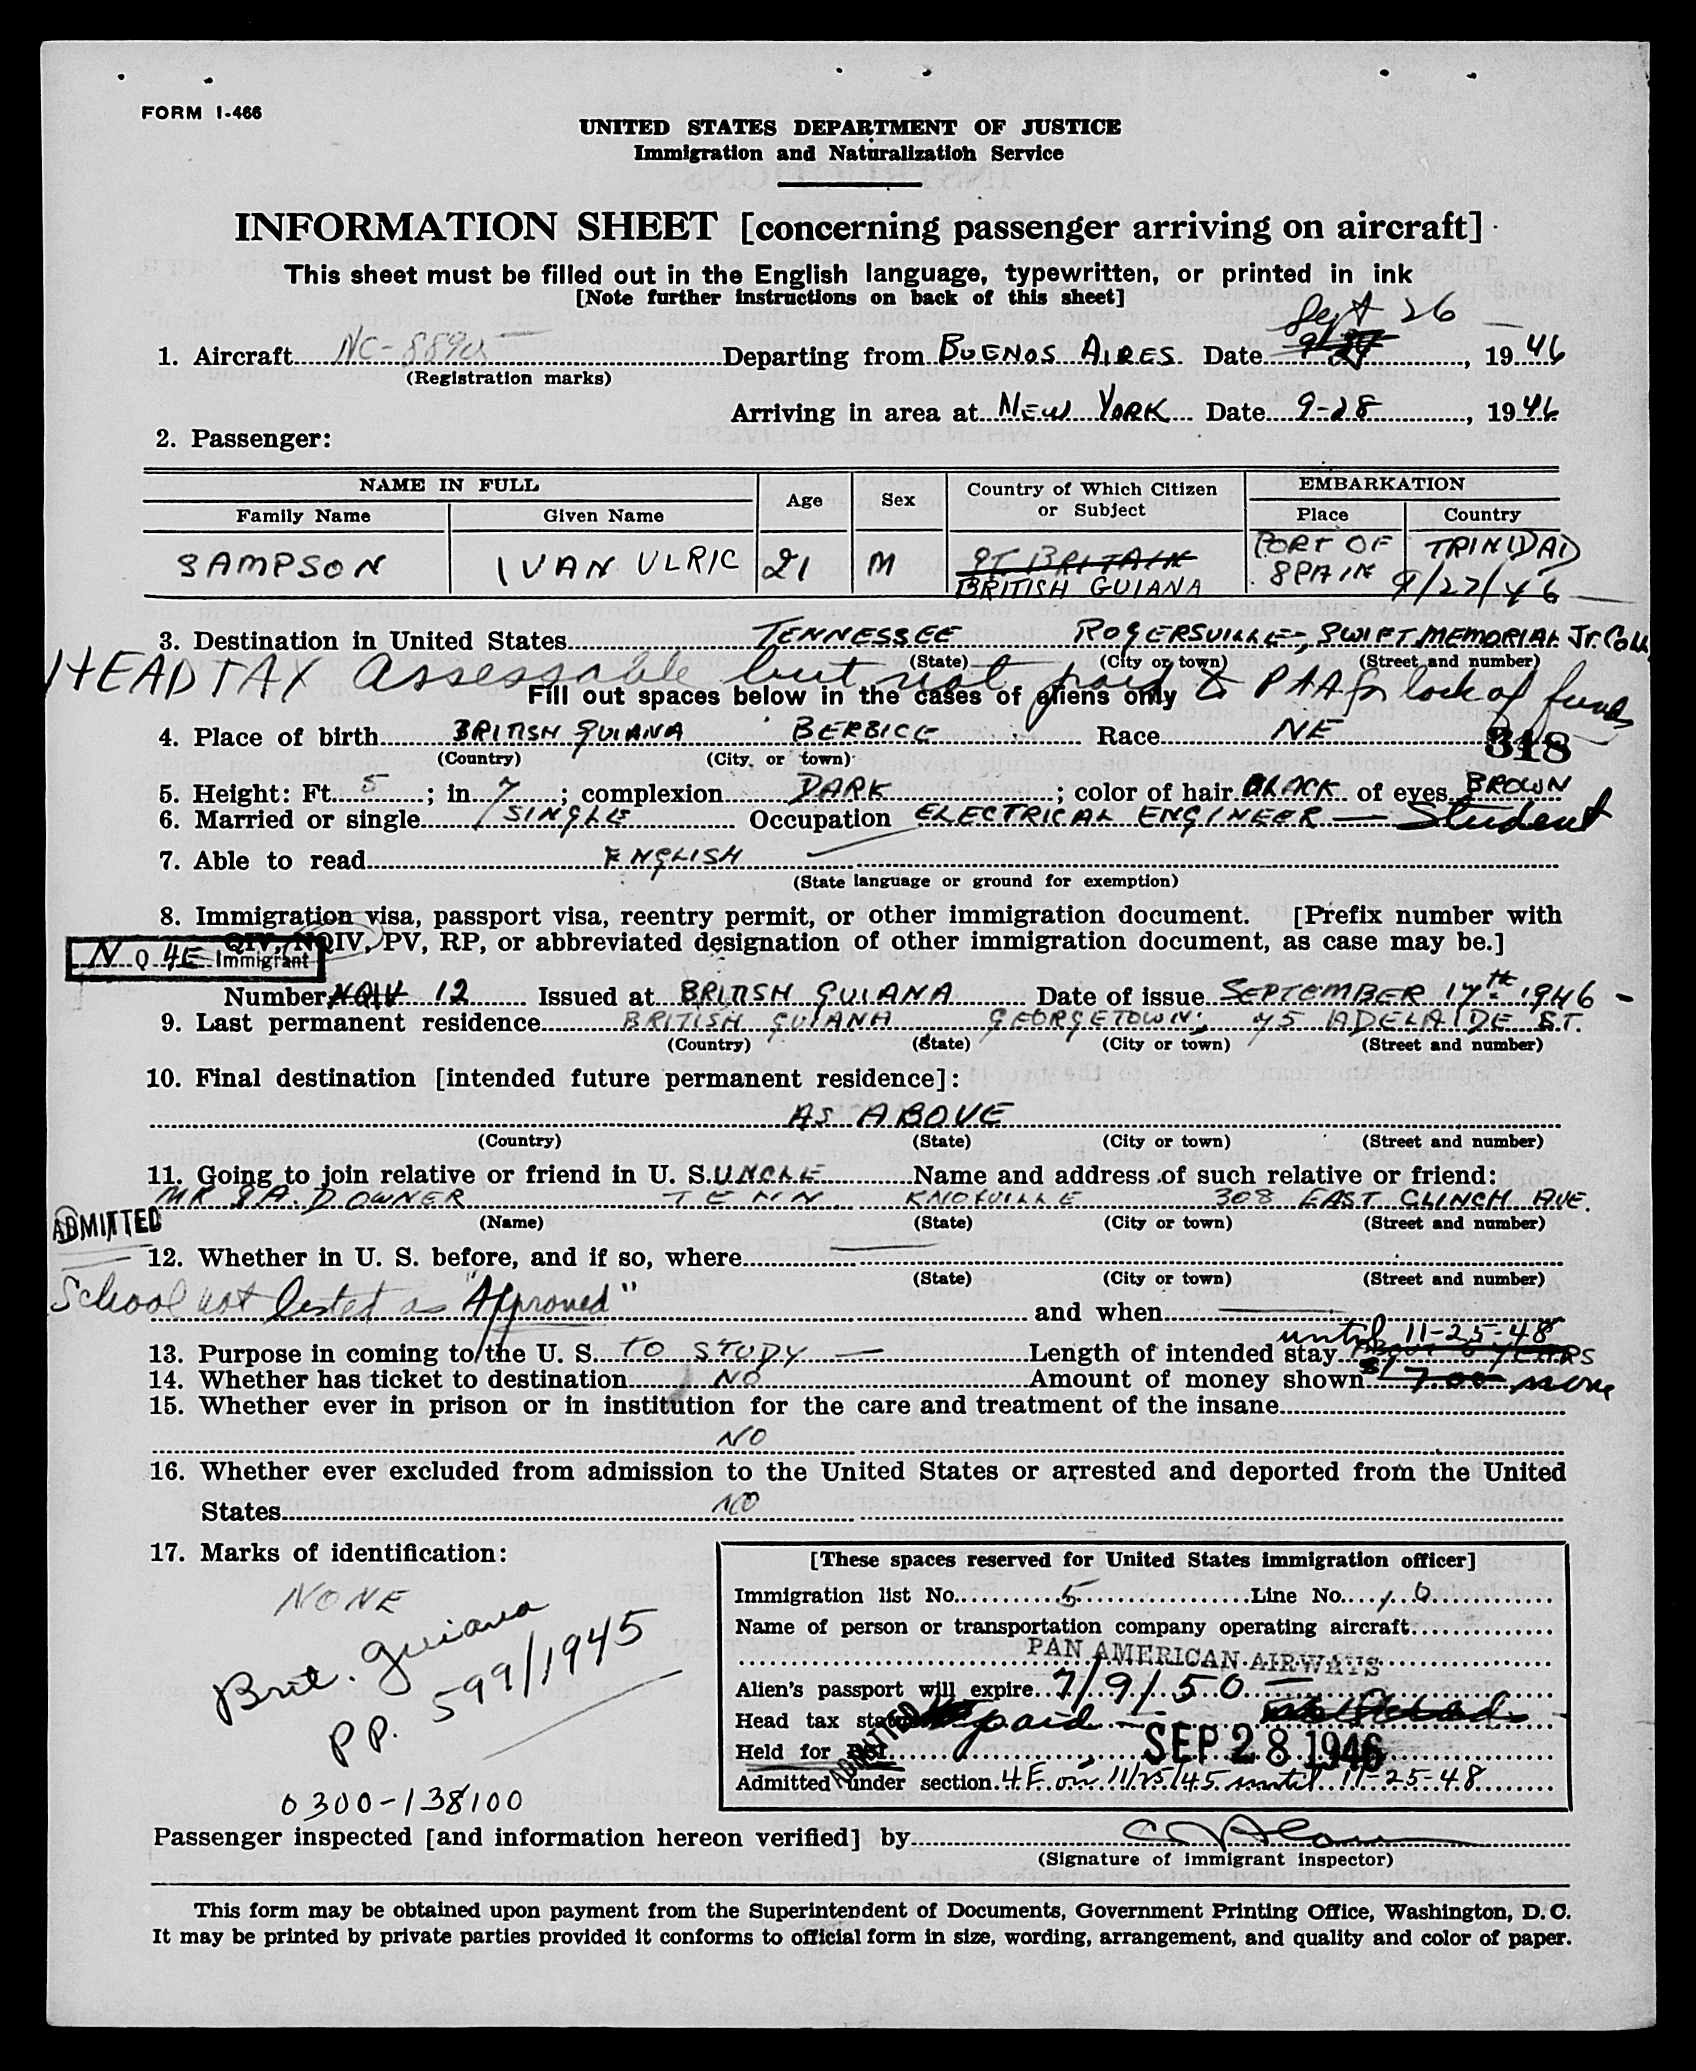 FORM I-466
UNITED STATES DEPARTMENT OF JUSTICE
Immigration and Naturalization Service
INFORMATION SHEET [concerning passenger arriving on aircraft]
This sheet must be filled out in the English language, typewritten, or printed in ink
[Note further instructions on back of this sheet]
Sept 26
1. Aircraft NC- Departing from BUENOS AIRES Date , 19 46
(Registration marks)
Arriving in area at NEW YORK Date 9-28 , 19 46
2. Passenger:
NAME IN FULL Age Sex Country of Which Citizen or Subject EMBARKATION
Family Name Given Name Place Country
SAMPSON IVAN ULRIC 21 M GT. BRITAIN PORT OF TRINIDAD
BRITISH GUIANA SPAIN 9/27/46
3. Destination in United States TENNESSEE ROGERSVILLE, SWIFT MEMORIAL Jr. Coll
(State) (City or town) (Street and number)
HEAD TAX assessable but not paid to PAA for lack of funds
Fill out spaces below in the cases of aliens only
4. Place of birth BRITISH GUIANA BERBICE Race NE 318
(Country) (City or town)
5. Height: Ft. 5 ; in. 7 ; complexion DARK ; color of hair BLACK of eyes BROWN
6. Married or single SINGLE Occupation ELECTRICAL ENGINEER — Student
7. Able to read ENGLISH
(State language or ground for exemption)
8. Immigration visa, passport visa, reentry permit, or other immigration document. [Prefix number with
QIV, NQIV, PV, RP, or abbreviated designation of other immigration document, as case may be.]
N Q 4E Immigrant
Number NQIV 12 Issued at BRITISH GUIANA Date of issue SEPTEMBER 17th 1946 -
9. Last permanent residence BRITISH GUIANA GEORGETOWN, 45 ADELAIDE ST.
(Country) (State) (City or town) (Street and number)
10. Final destination [intended future permanent residence]:
AS ABOVE
(Country) (State) (City or town) (Street and number)
11. Going to join relative or friend in U. S. UNCLE Name and address of such relative or friend:
MR DOWNER TENN KNOXVILLE 308 EAST CLINCH AVE.
(Name) (State) (City or town) (Street and number)
ADMITTED
12. Whether in U. S. before, and if so, where —
(State) (City or town) (Street and number)
School not listed as "Approved"
and when —
until 11-25-48
13. Purpose in coming to the U. S. TO STUDY — Length of intended stay YEARS
14. Whether has ticket to destination NO Amount of money shown $7.00 none
15. Whether ever in prison or in institution for the care and treatment of the insane
NO
16. Whether ever excluded from admission to the United States or arrested and deported from the United
States NO
17. Marks of identification:
NONE
Brit. Guiana
PP. 599/1945
0300-138100
[These spaces reserved for United States immigration officer]
Immigration list No. 5 Line No. 10
Name of person or transportation company operating aircraft
PAN AMERICAN AIRWAYS
Alien's passport will expire 7/9/50
Head tax status paid —
ADMITTED
Held for BSI SEP 28 1946
Admitted under section 4E on 11/25/45 until 11-25-48
Passenger inspected [and information hereon verified] by
(Signature of immigrant inspector)
This form may be obtained upon payment from the Superintendent of Documents, Government Printing Office, Washington, D. C.
It may be printed by private parties provided it conforms to official form in size, wording, arrangement, and quality and color of paper.